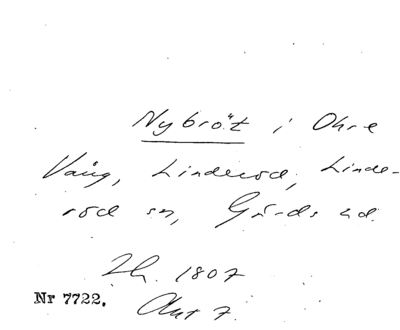 Nybröt i Ohre
Vång, Linderöd, Linde-
röd sn, Gärds hd.
Lh. 1807
Nr 7722. Akt 7